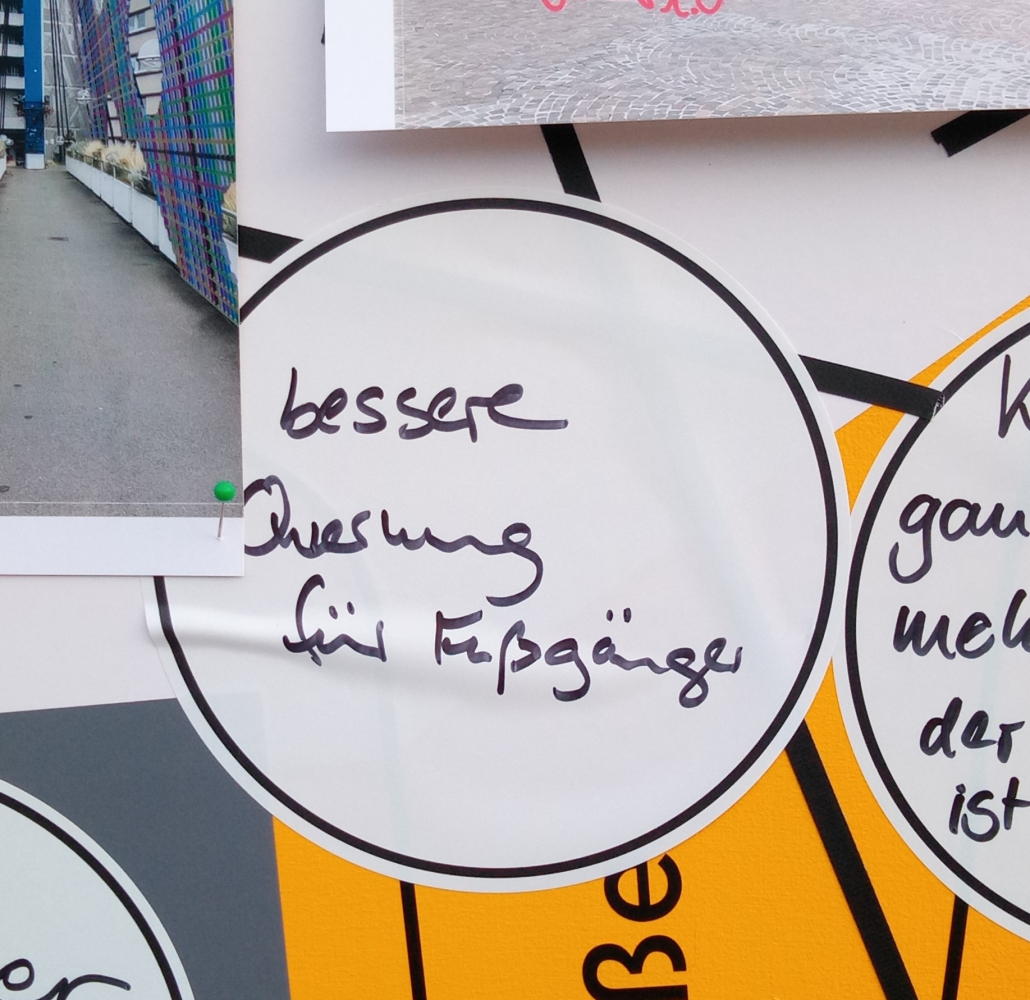 bessere
Querung
für Fußgänger
gan
meh
der
ist
ße
er